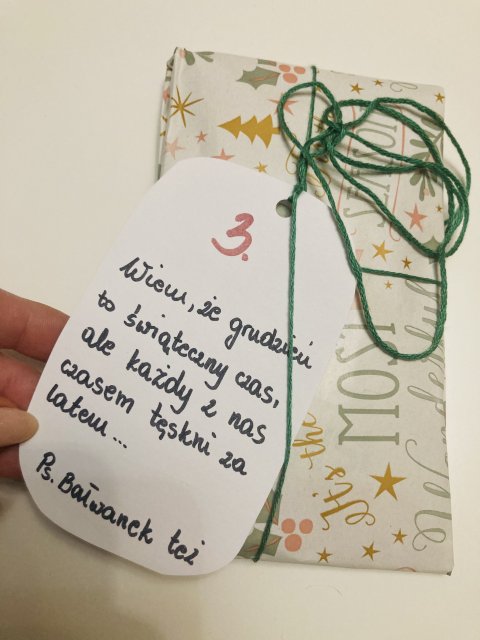 3.
Wiem, że grudzień
to świąteczny czas,
ale każdy z nas
czasem tęskni za
latem...
Ps. Bałwanek też
It's the
MOST